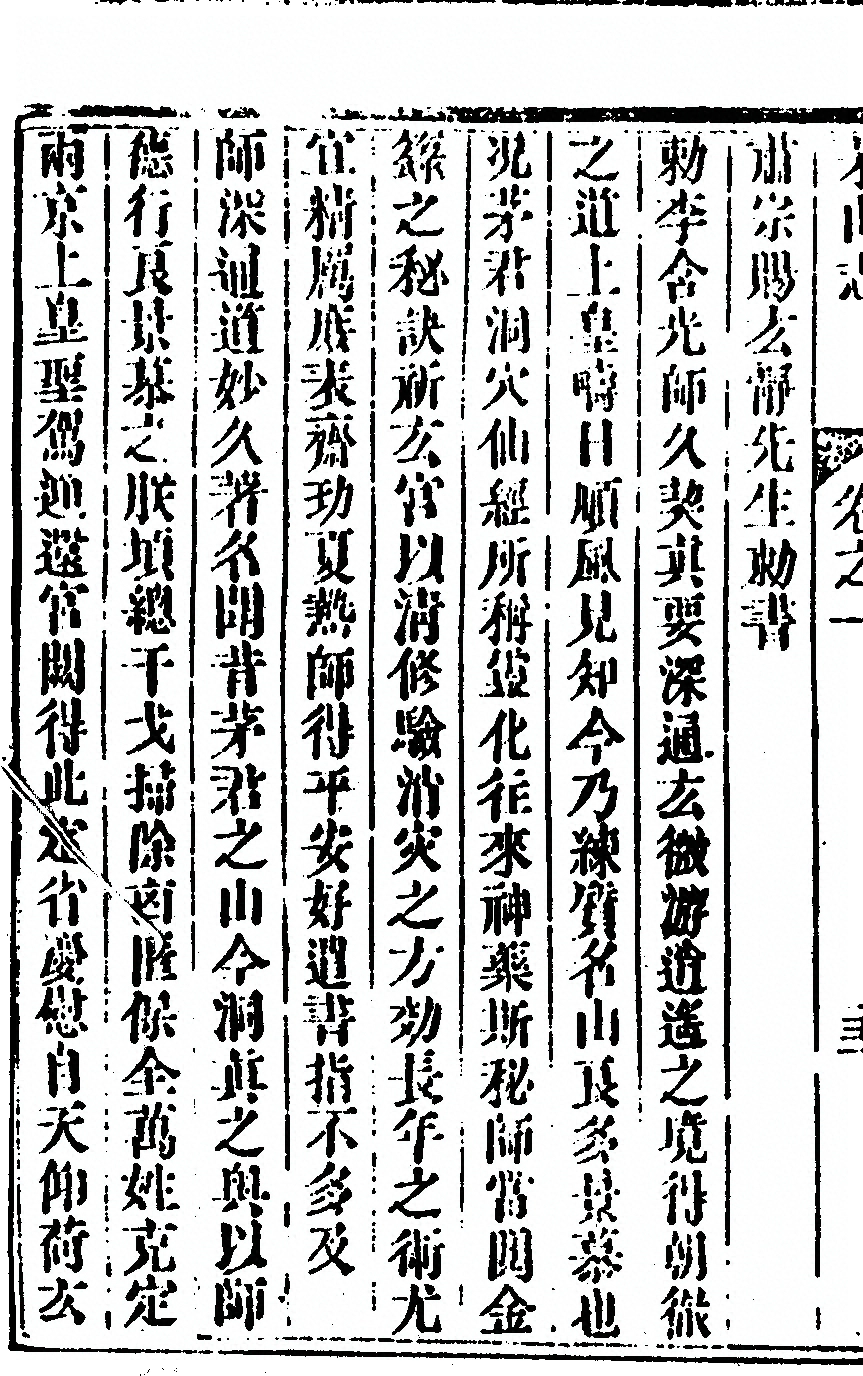 卷之一
肅宗賜玄靜先生勅書
勅李含光師久契真要深通玄微游逍遙之境得朝徹
之道上皇疇日順風見知今乃練質名山良多景慕也
况茅君洞穴仙經所稱靈化往來神藥斯秘師當閱金
籙之秘訣祈玄宮以清修驗消灾之方効長年之術尤
宜精厲底表齋功夏熱師得平安好遣書指不多及
師深通道妙久著名聞昔茅君之山今洞真之與以師
德行良景慕之朕頃總干戈掃除凶醜保全萬姓克定
兩京上皇聖駕迎還宮闕得此定省慶慰自天仰荷玄